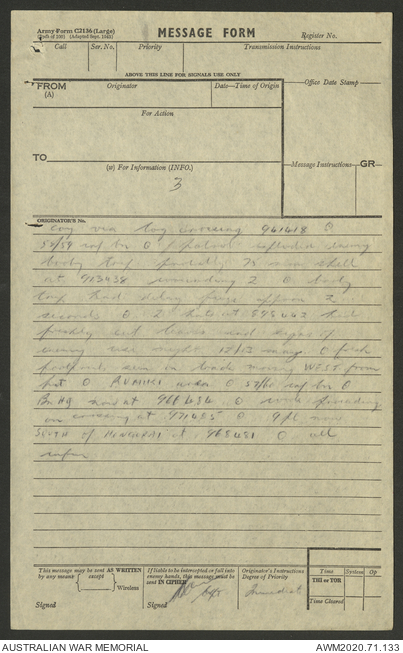 Army Form C2136 (Large)
MESSAGE FORM
Register No.
Call Ser. No. Priority Transmission Instructions
ABOVE THIS LINE FOR SIGNALS USE ONLY
FROM
(A)
Originator
Date—Time of Origin
Office Date Stamp
For Action
TO
(w) For Information (INFO.)
Message Instructions
GR
3
ORIGINATOR'S No.
coy via coy crossing 941418 O
58/59 inf bn O patrol exploded enemy
booby trap 75 mm shell
at 923438 wounding 2 O booby
trap had delay fuze approx 2
seconds O 2 huts at 442 had
freshly cut leaves and signs of
enemy use night 12/13 may O fresh
footprints seen on track moving WEST from
hut O O 57/60 inf bn O
Bn HQ now at 466434 O work proceeding
on crossing at 471425 O 9 pl now
SOUTH of at 465421 O all
infm
This message may be sent AS WRITTEN
by any means (except ) Wireless
Signed
If liable to be intercepted or fall into
enemy hands, this message must be
sent IN CIPHER
Signed
Originator's Instructions
Degree of Priority
Immediate
Time System Op
THI or TOR
Time Cleared
AUSTRALIAN WAR MEMORIAL
AWM2020.71.133